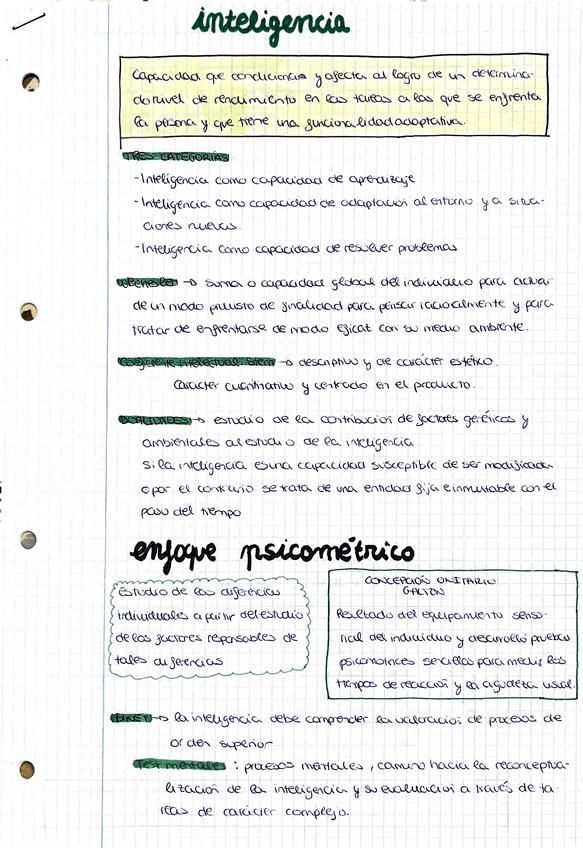 inteligencia
Capacidad qe condiciona y afecta al logro de un determina-
do nivel de rendimiento en las tareas a las que se enfrenta
la persona y que tiene una funcionalidad adaptativa.
TRES CATEGORÍAS
-Inteligencia como capacidad de aprendizaje
-Inteligencia como capacidad de adaptación al entorno y a situa-
ciones nuevas.
-Inteligencia como capacidad de resolver problemas
Wechsler → suma o capacidad global del individuo para actuar
de un modo provisto de finalidad para pensar racionalmente y para
tratar de enfrentarse de modo eficat con su medio ambiente.
Cociente intelectual. Stern → descriptivo y de carácter estático.
Carácter cuantitativo y centrado en el producto.
DUALIDADES → estudio de la contribución de factores genéticos y
ambientales al estudio de la inteligencia
si la inteligencia es una capacidad susceptible de ser modificada
o por el contrario se trata de una entidad fija e inmutable con el
paso del tiempo
enfoque psicométrico
Estudio de las diferencias
individuales a partir del estudio
de los factores reponsables de
tales diferencias
CONCEPCIÓN UNITARIO
GALTON
Resultado del equipamiento senso-
rial del individuo y desarrolló pruebas
psicomotrices sencillas para medir los
tiempos de reacción y la agudeza visual.
BINET → la inteligencia debe comprender la valoración de procesos de
orden superior
Test mentales : procesos mentales, camino hacia la reconceptua-
lización de la inteligencia y su evaluación a través de ta-
reas de carácter complejo.